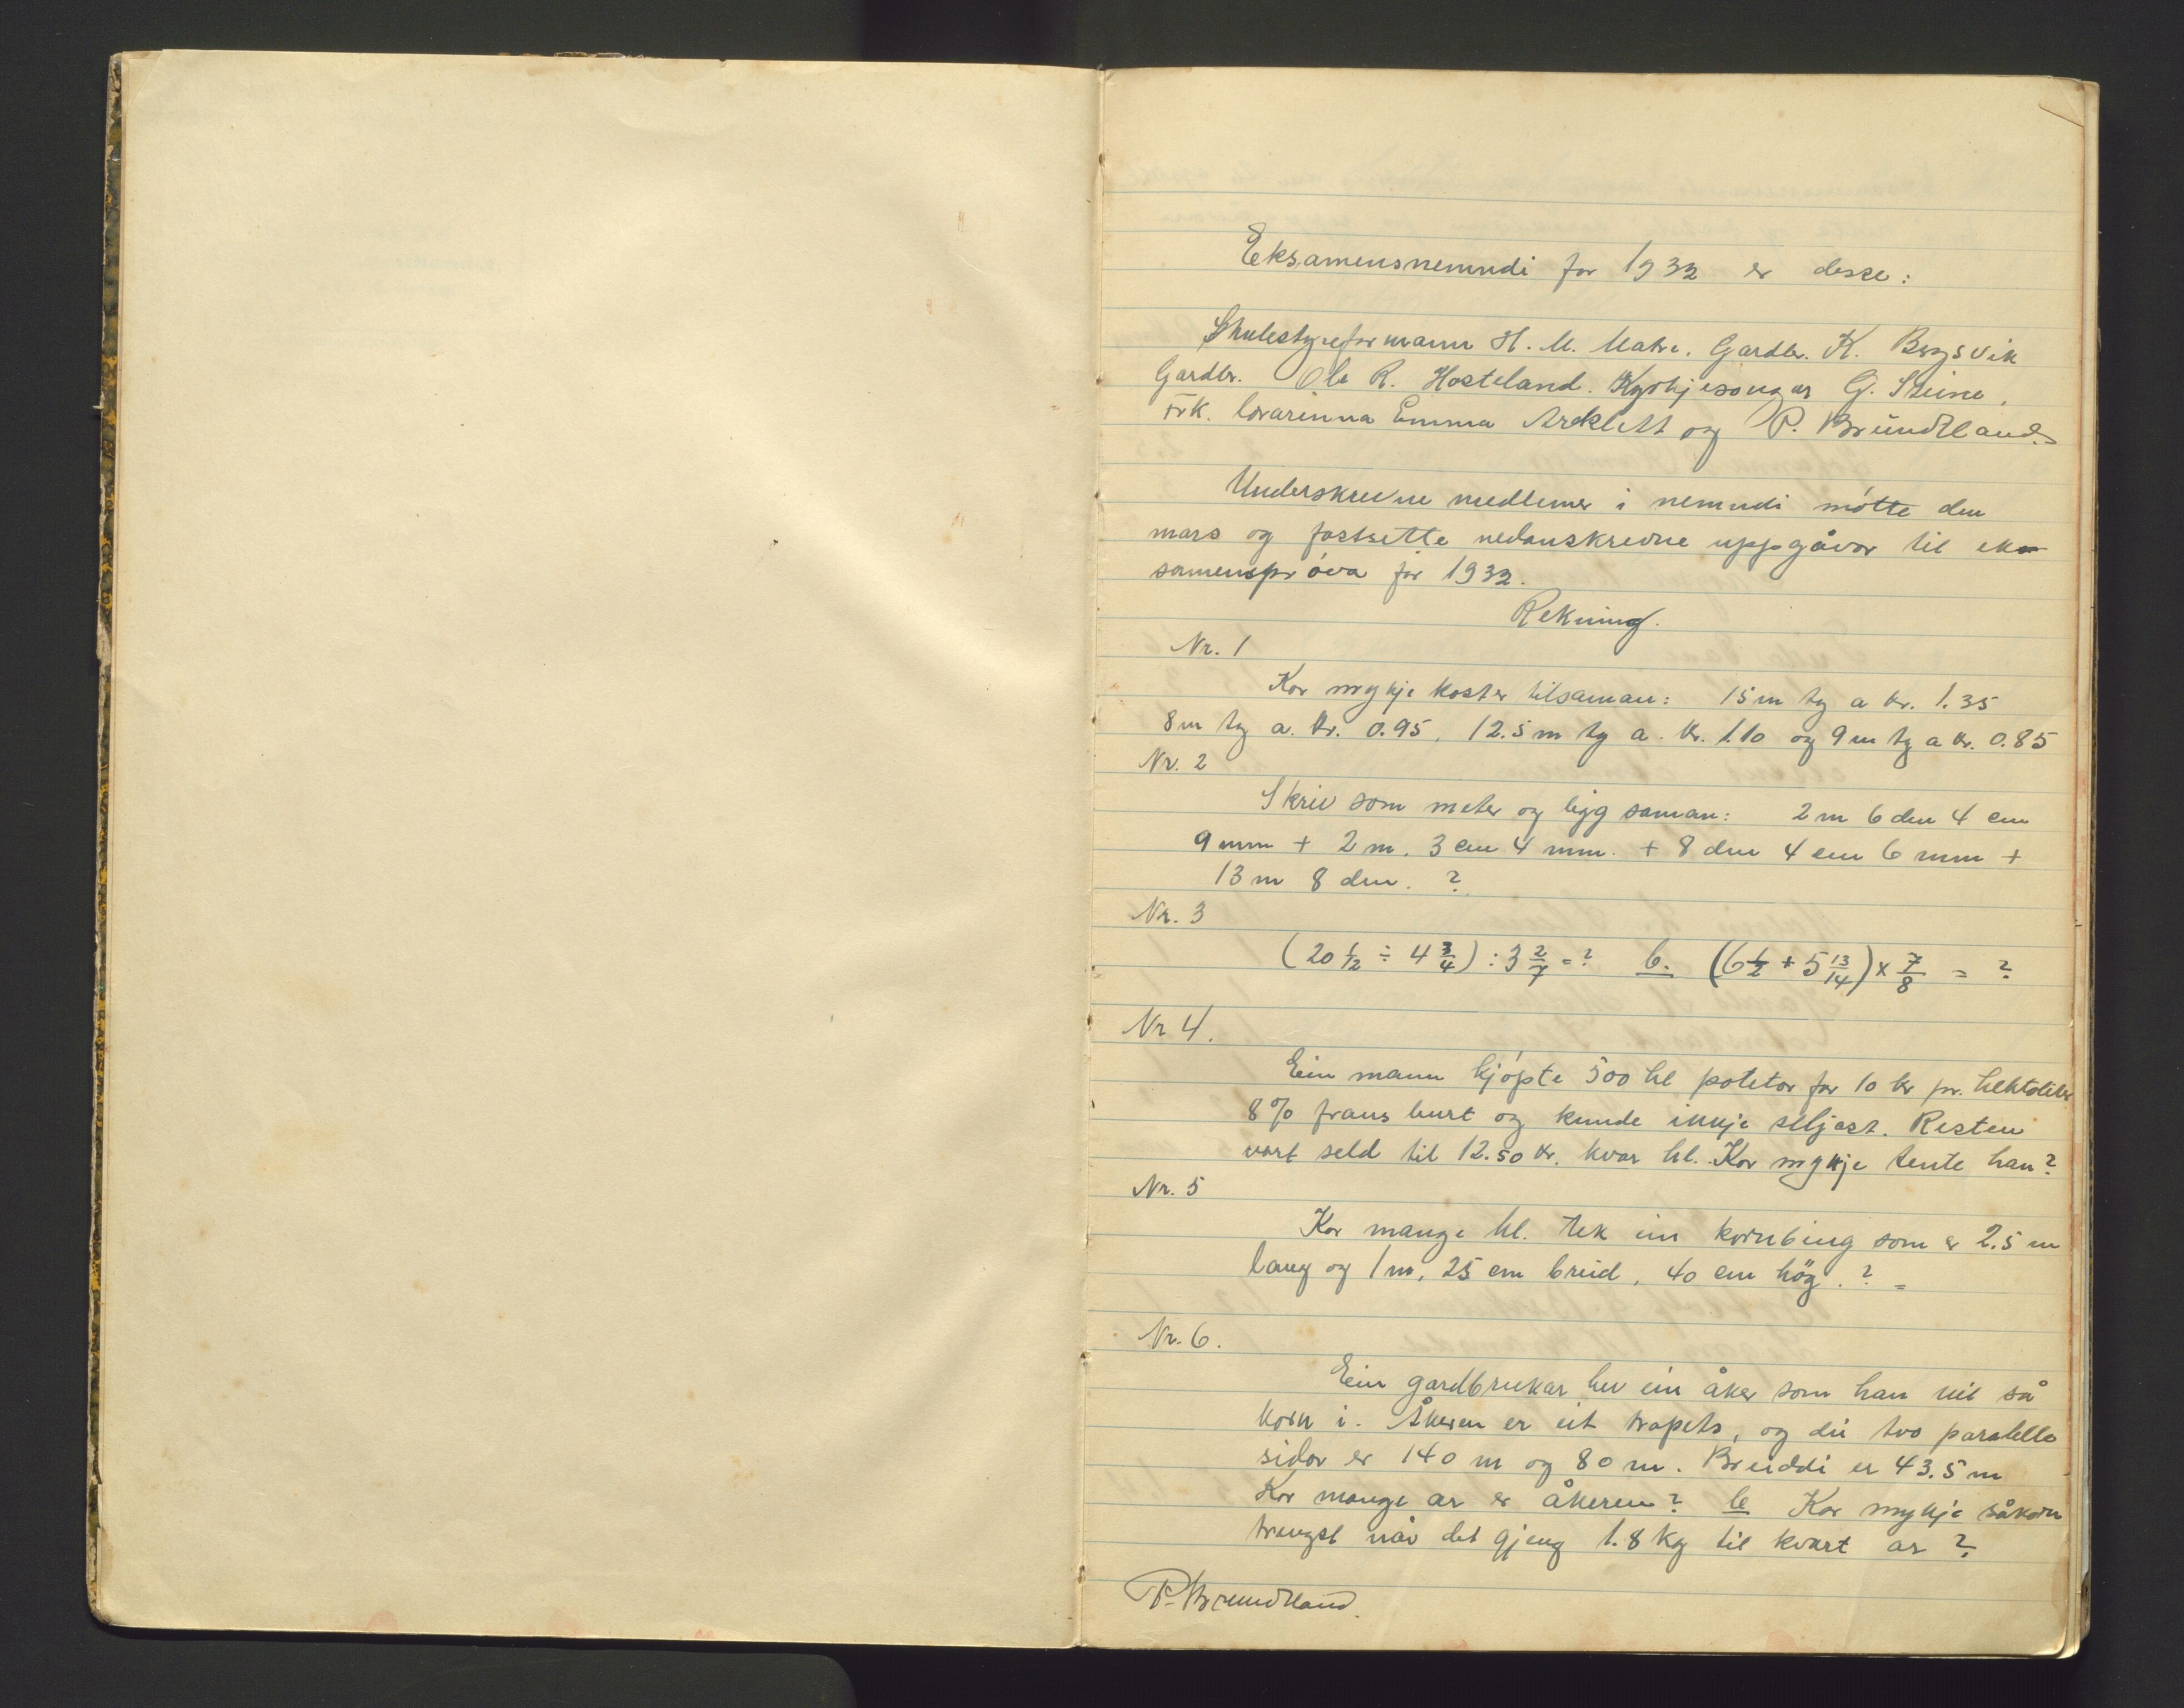 Eksamensnemndi for 1932 er desse:
Skulestyreformann H. M. Matre. Gardbr. K. Bergsvik
Gardbr. Ole R. Hosteland. Kyrkjesongar G. Steine.
frk. lærarinna Emma og P. Brundtland.
Underskrevne medlemer i nemndi møtte den
mars og fastsette nedanskrevne uppgåvor til ek-
samensprøva for 1932.
Rekning.
Nr. 1
Kor mykje kostar tilsaman: 15 m ty a kr. 1.35
8 m ty a. kr. 0.95, 12.5 m ty a. kr. 1.10 og 9 m ty a kr. 0.85
Nr. 2
Skriv som meter og legg saman: 2 m 6 dm 4 cm
9 mm + 2 m. 3 cm 4 mm. + 8 dm 4 cm 6 mm +
13 m 8 dm. ?
Nr. 3
(20 1/12 ÷ 4 3/4) : 3 2/7 = ? b. (6 1/2 + 5 13/14) x 7/8 = ?
Nr 4.
Ein mann kjøpte 500 hl potetor for 10 kr pr. hektoliter
8% fraus burt og kunde inkje seljast. Resten
vart seld til 12.50 kr. kvar hl. Kor mykje tente han?
Nr. 5
Kor mange hl. tek ein kornbing som er 2.5 m
lang og 1 m, 25 cm breid, 40 cm høg. ? =
Nr. 6.
Ein gardbrukar hev ein åker som han vil så
korn i. Åkeren er eit trapets, og dei tvo paralelle
sidor er 140 m og 80 m. Breiddi er 43.5 m
Kor mange ar er åkeren? b Kor mykje såkorn
trengst når det gjeng 1.8 kg til kvart ar ?
P. Brundtland.